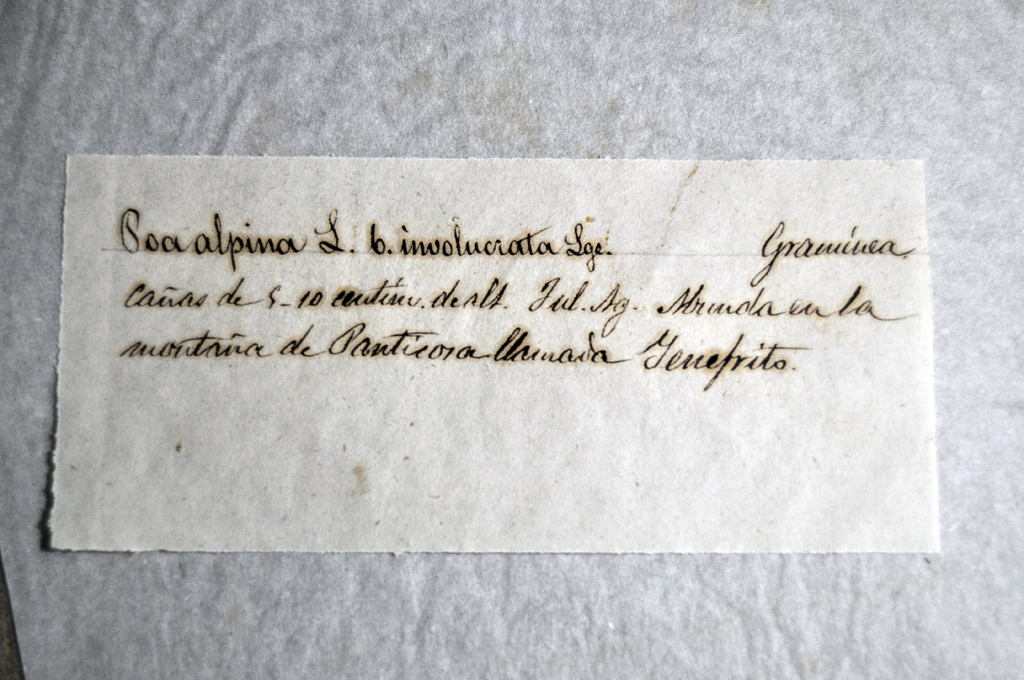 Poa alpina L. b. involucrata Lge. Gramínea
cañas de 5-10 centím. de alt. Jul. Ag. Abunda en la
montaña de Panticosa llamada Yenefrito.